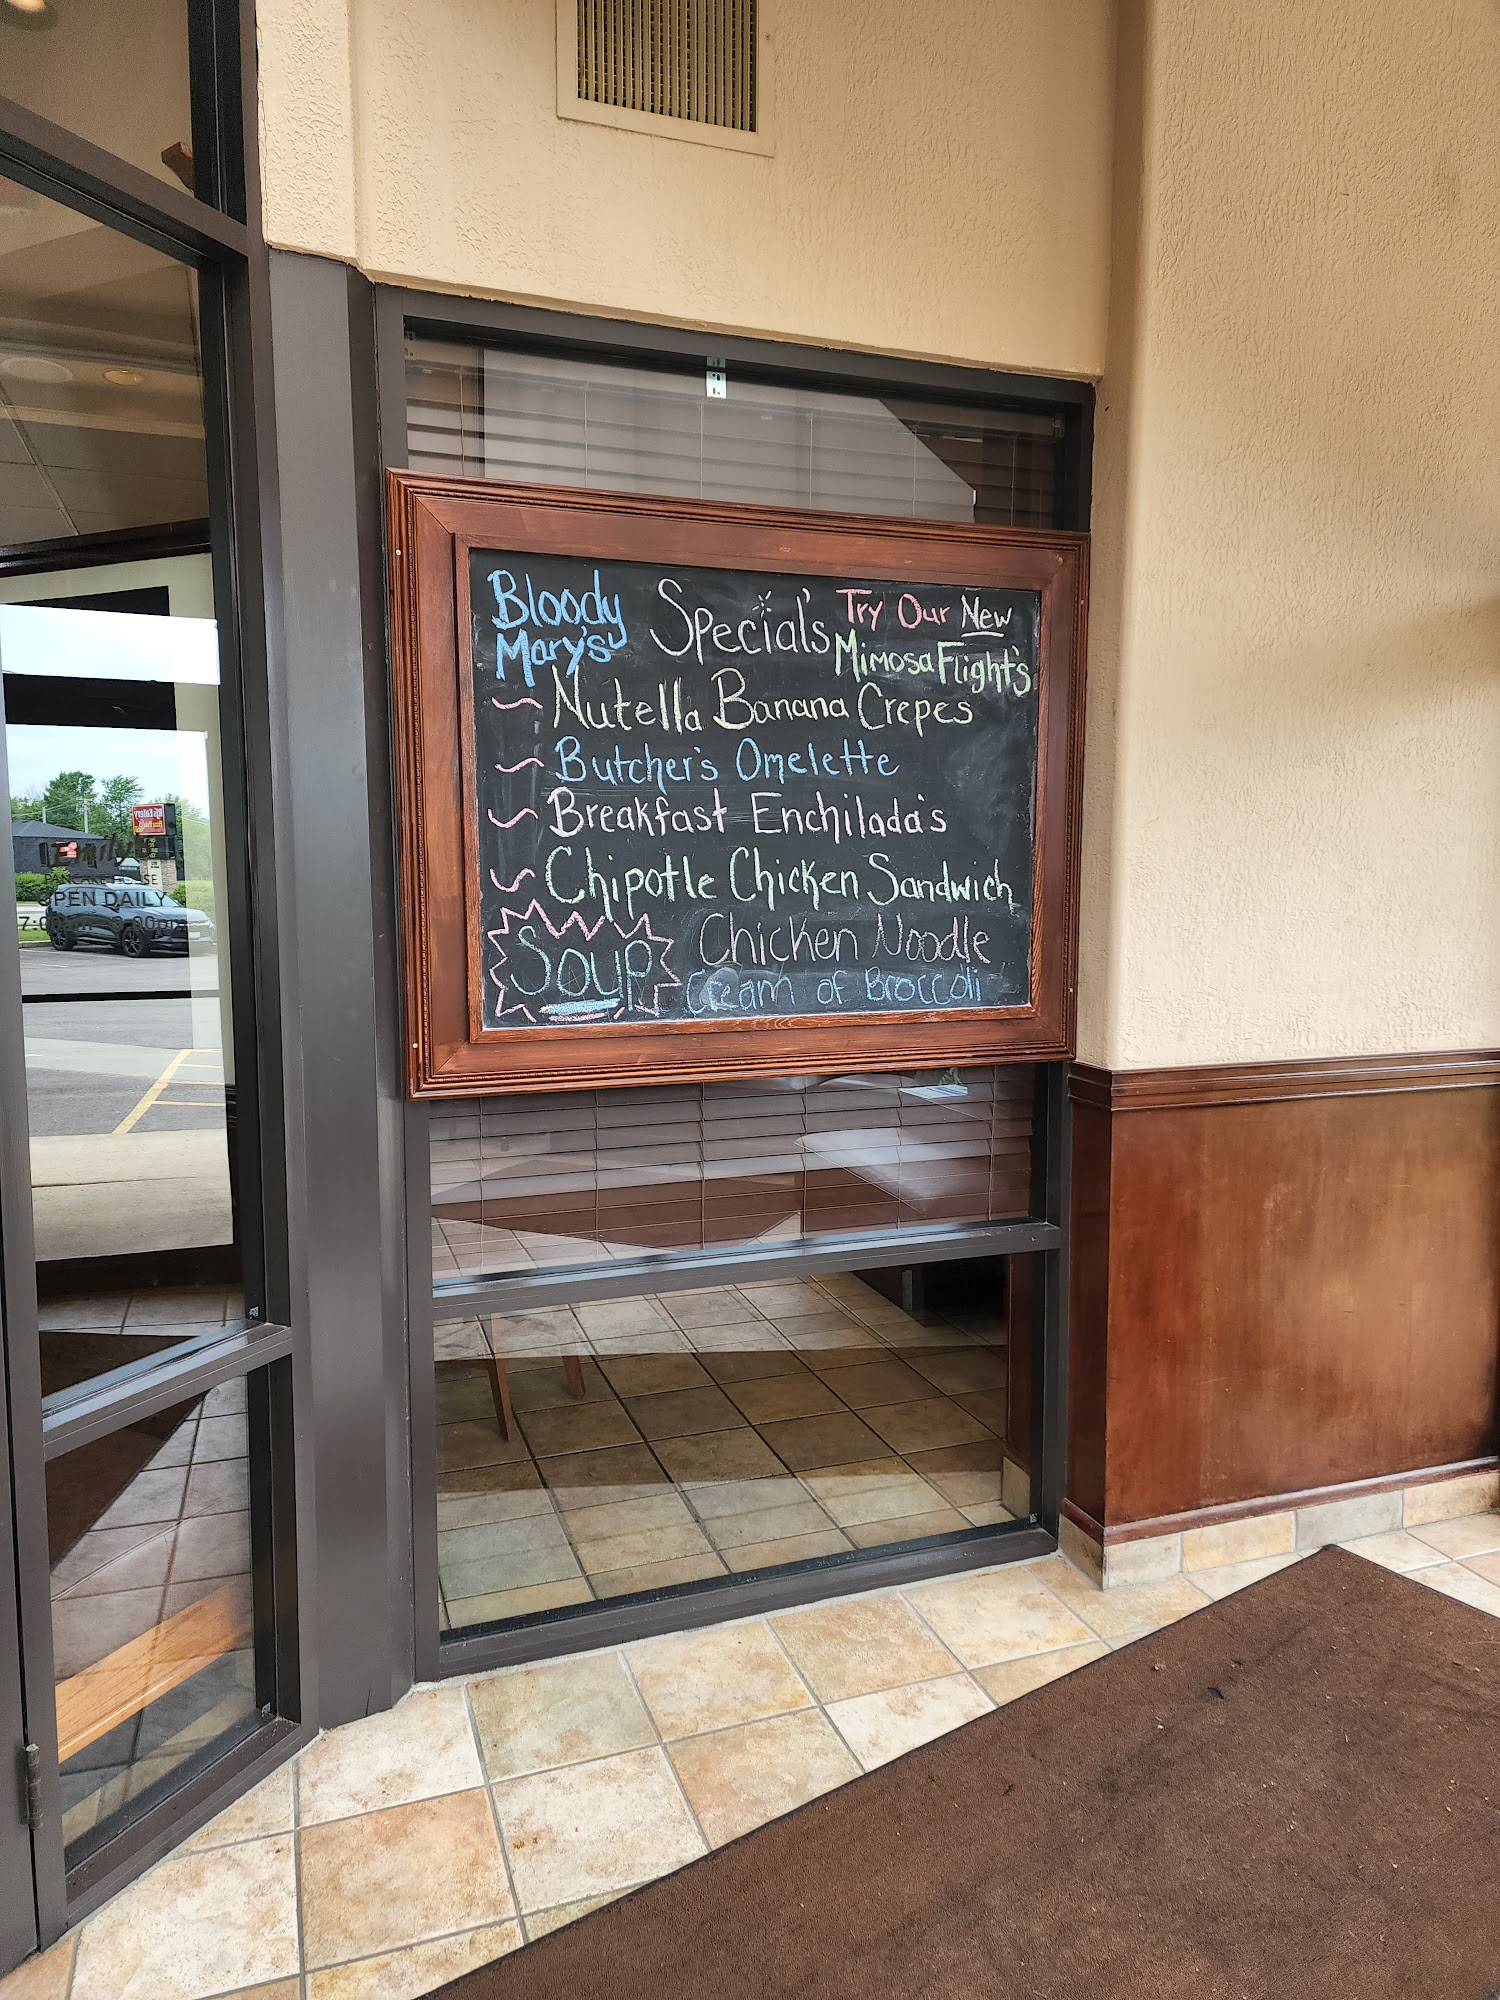 Bloody
Mary's
Special's
Try Our New
Mimosa Flight's
Nutella Banana Crepes
Butcher's Omelette
Breakfast Enchilada's
Chipotle Chicken Sandwich
Soup
Chicken Noodle
Cream of Broccoli
OPEN DAILY